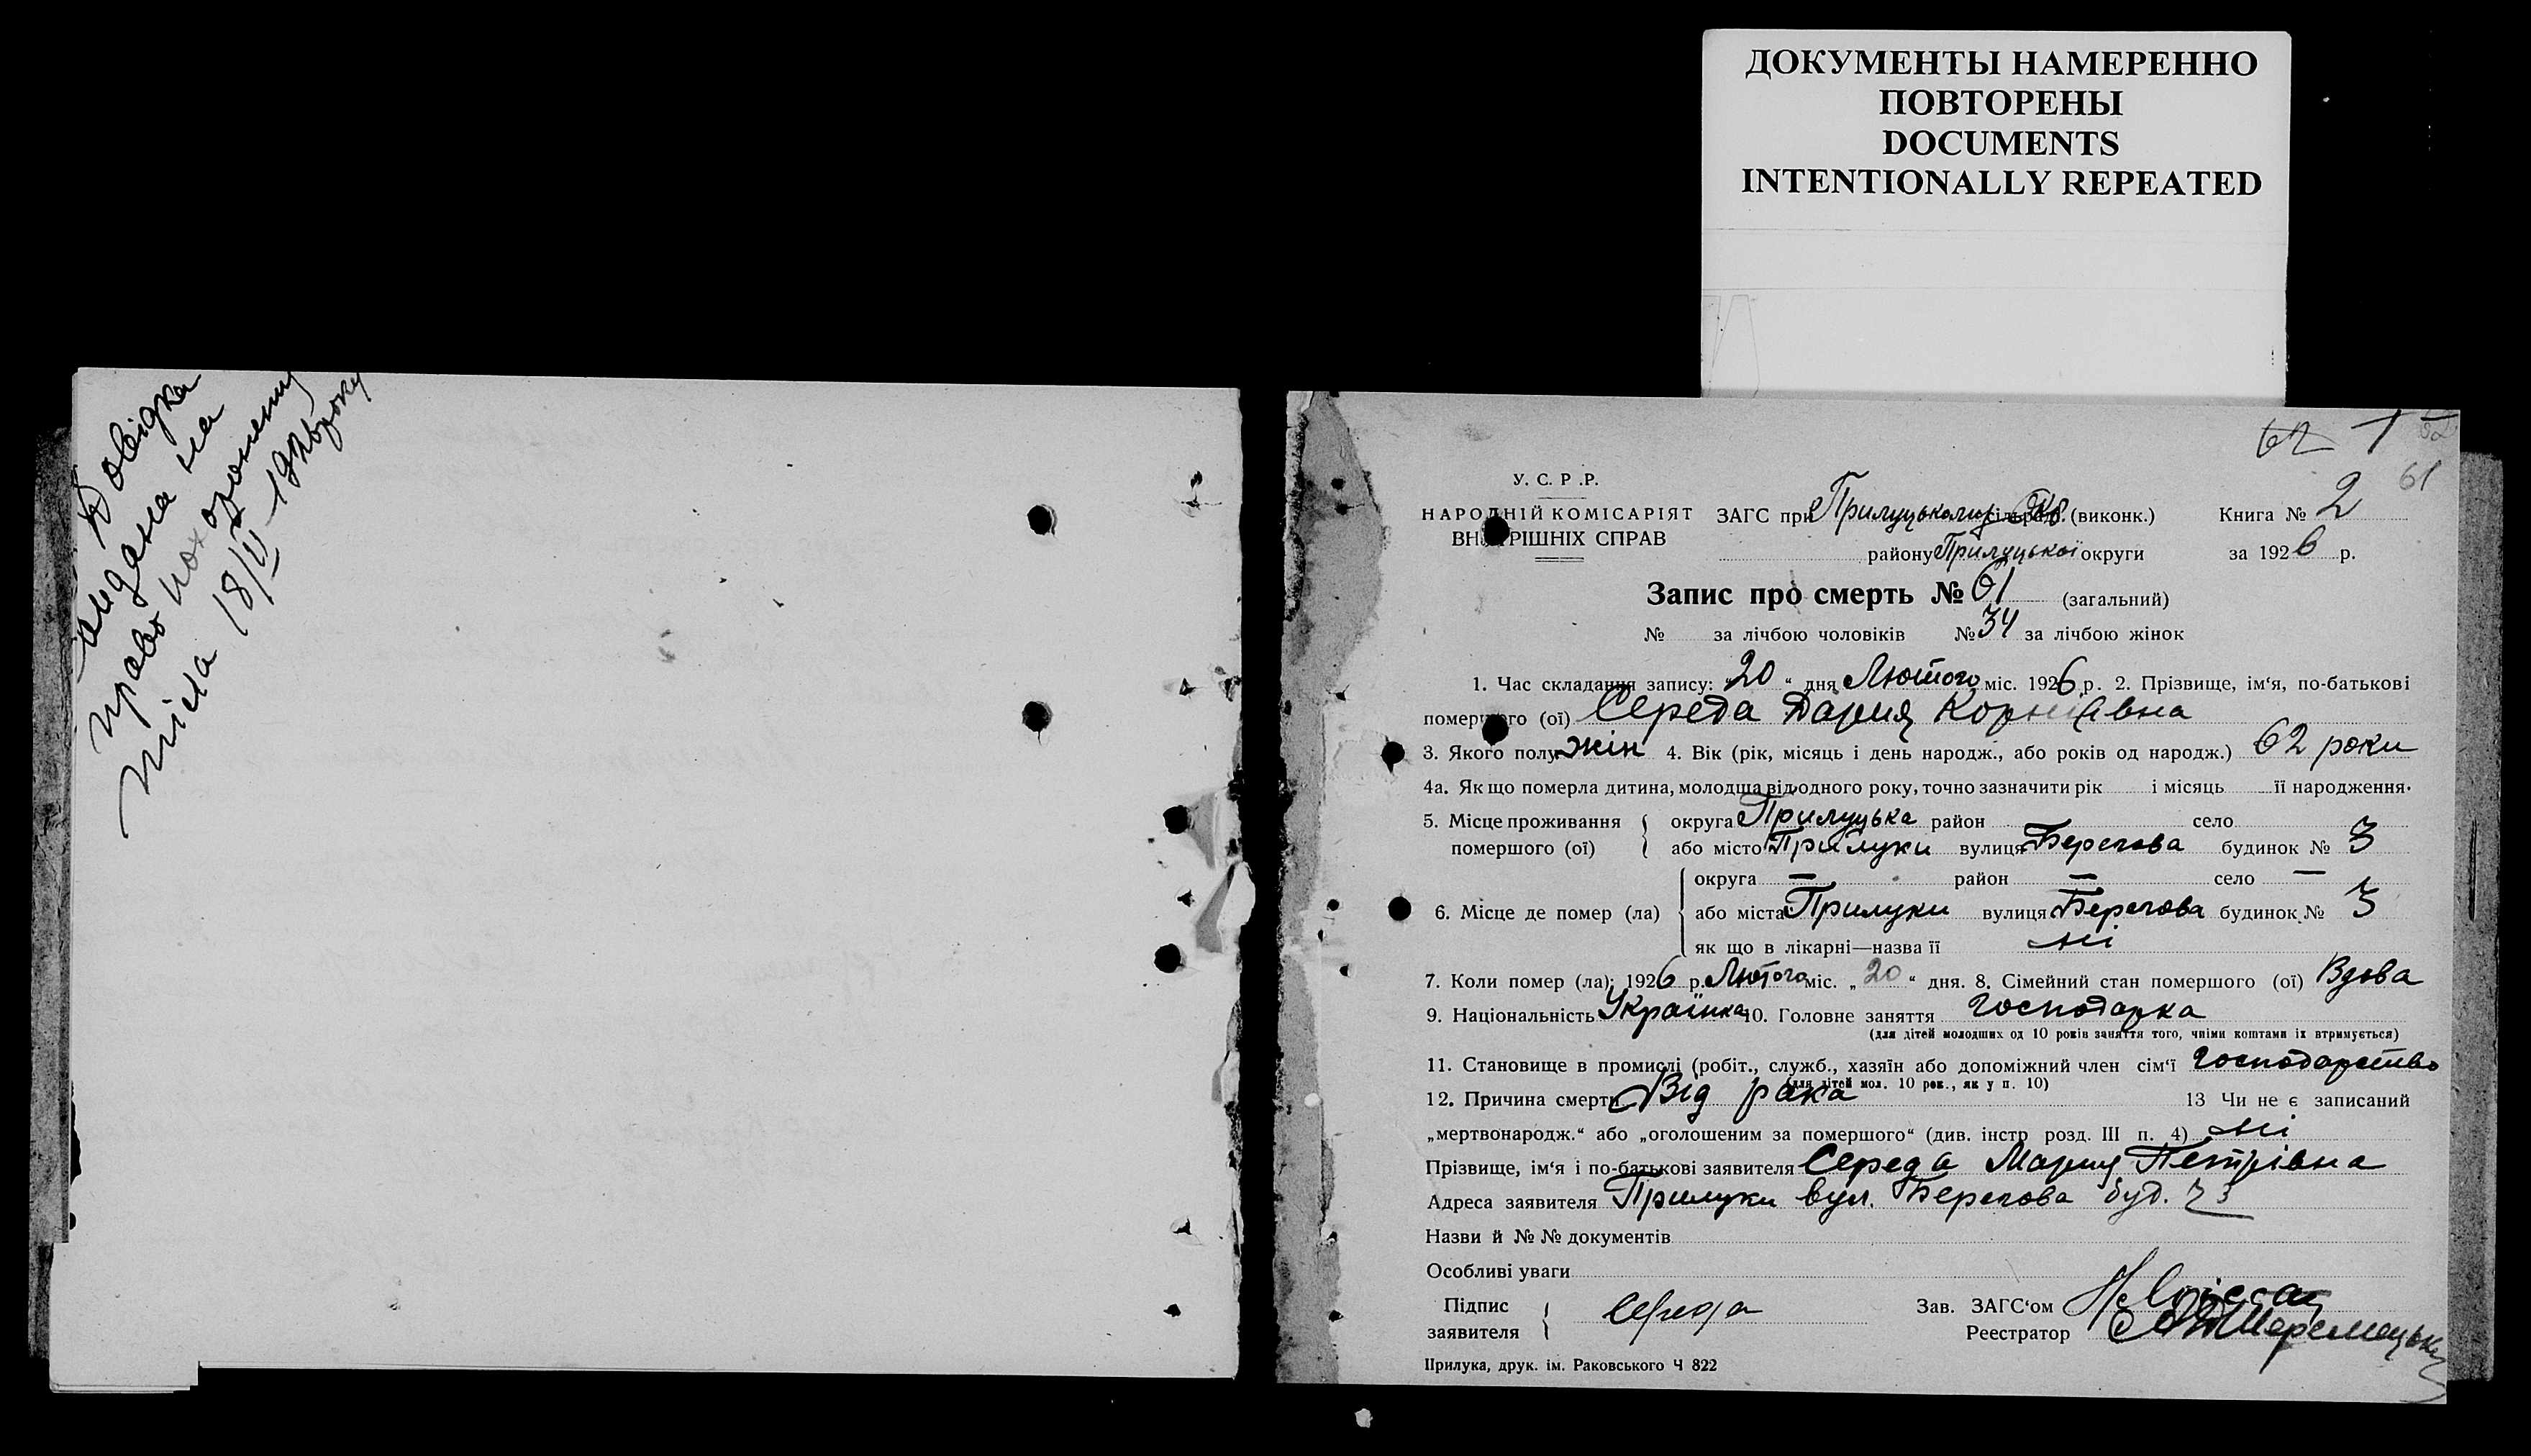 ДОКУМЕНТЫ НАМЕРЕННО
ПОВТОРЕНЫ
DOCUMENTS
INTENTIONALLY REPEATED
Довідка
видана на
право похоронення
тіла 18/II 1926 року
62 1
61
У. С. Р .Р.
НАРОДНІЙ КОМІСАРІЯТ
ВНУТРІШНІХ СПРАВ
ЗАГС при Прилуцькому (виконк.) Книга № 2
району Прилуцької округи за 1926 р.
Запис про смерть № 61 (загальний)
№ за лічбою чоловіків № 34 за лічбою жінок
1. Час складання запису: „20“ дня Лютого міс. 1926 р. 2. Прізвище, ім‘я, по-батькові
помершого (ої) Середа Дария Корніївна
3. Якого полу жін 4. Вік (рік, місяць і день народж., або років од народж.) 62 роки
4а. Як що померла дитина, молодша від одного року, точно зазначити рік і місяць її народження.
5. Місце проживання помершого (ої) { округа Прилуцька район село
або місто Прилуки вулиця Берегова будинок № 3
6. Місце де помер (ла) { округа — район — село —
або міста Прилуки вулиця Берегова будинок № 3
як що в лікарні—назва її ні
7. Коли помер (ла): 1926 р. Лютого міс. „20“ дня. 8. Сімейний стан помершого (ої) Вдова
9. Національність Українка 10. Головне заняття господарка
(для дітей молодших од 10 років заняття того, чиїми коштами їх втримується)
11. Становище в промислі (робіт., служб., хазяїн або допоміжний член сім‘ї господарство
(для дітей мол. 10 рок., як у п. 10)
12. Причина смерти Від рака 13 Чи не є записаний
„мертвонародж.“ або „оголошеним за помершого“ (див. інстр розд. III п. 4) ні
Прізвище, ім‘я і по-батькові заявителя Середа Мария Петрівна
Адреса заявителя Прилуки вул. Берегова буд. 3
Назви й № № документів
Особливі уваги
Підпис заявителя { Середа
Зав. ЗАГС‘ом
Реєстратор
Прилука, друк. ім. Раковського Ч 822